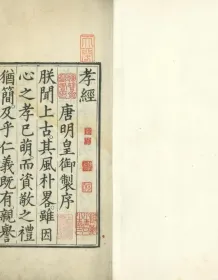 孝經
唐明皇御製序
朕聞上古其風朴畧雖因
心之孝已萌而資敬之禮
猶簡及乎仁義既有親譽